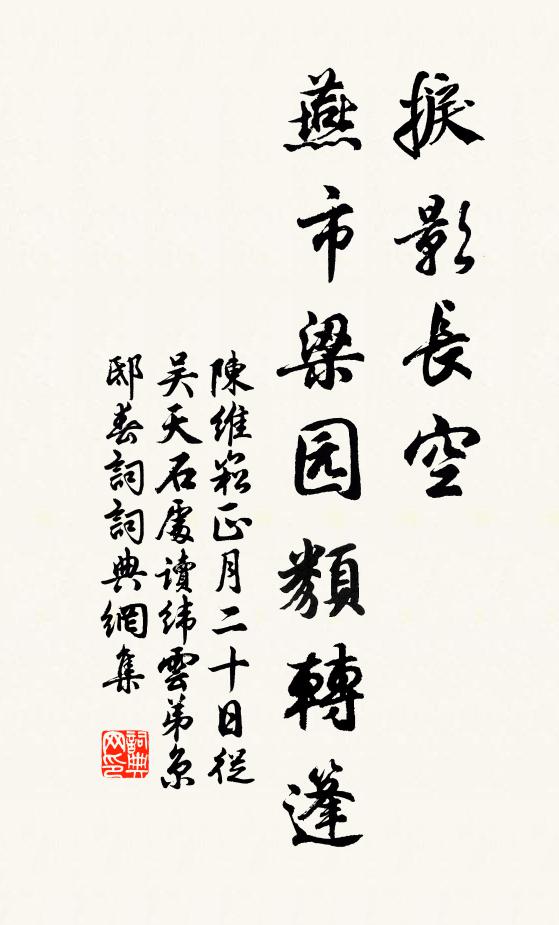 捩影長空
燕市梁园類轉蓬
陳維崧正月二十日從
吴天石處讀緯雲弟京
邸春詞詞典網集
詞典网印